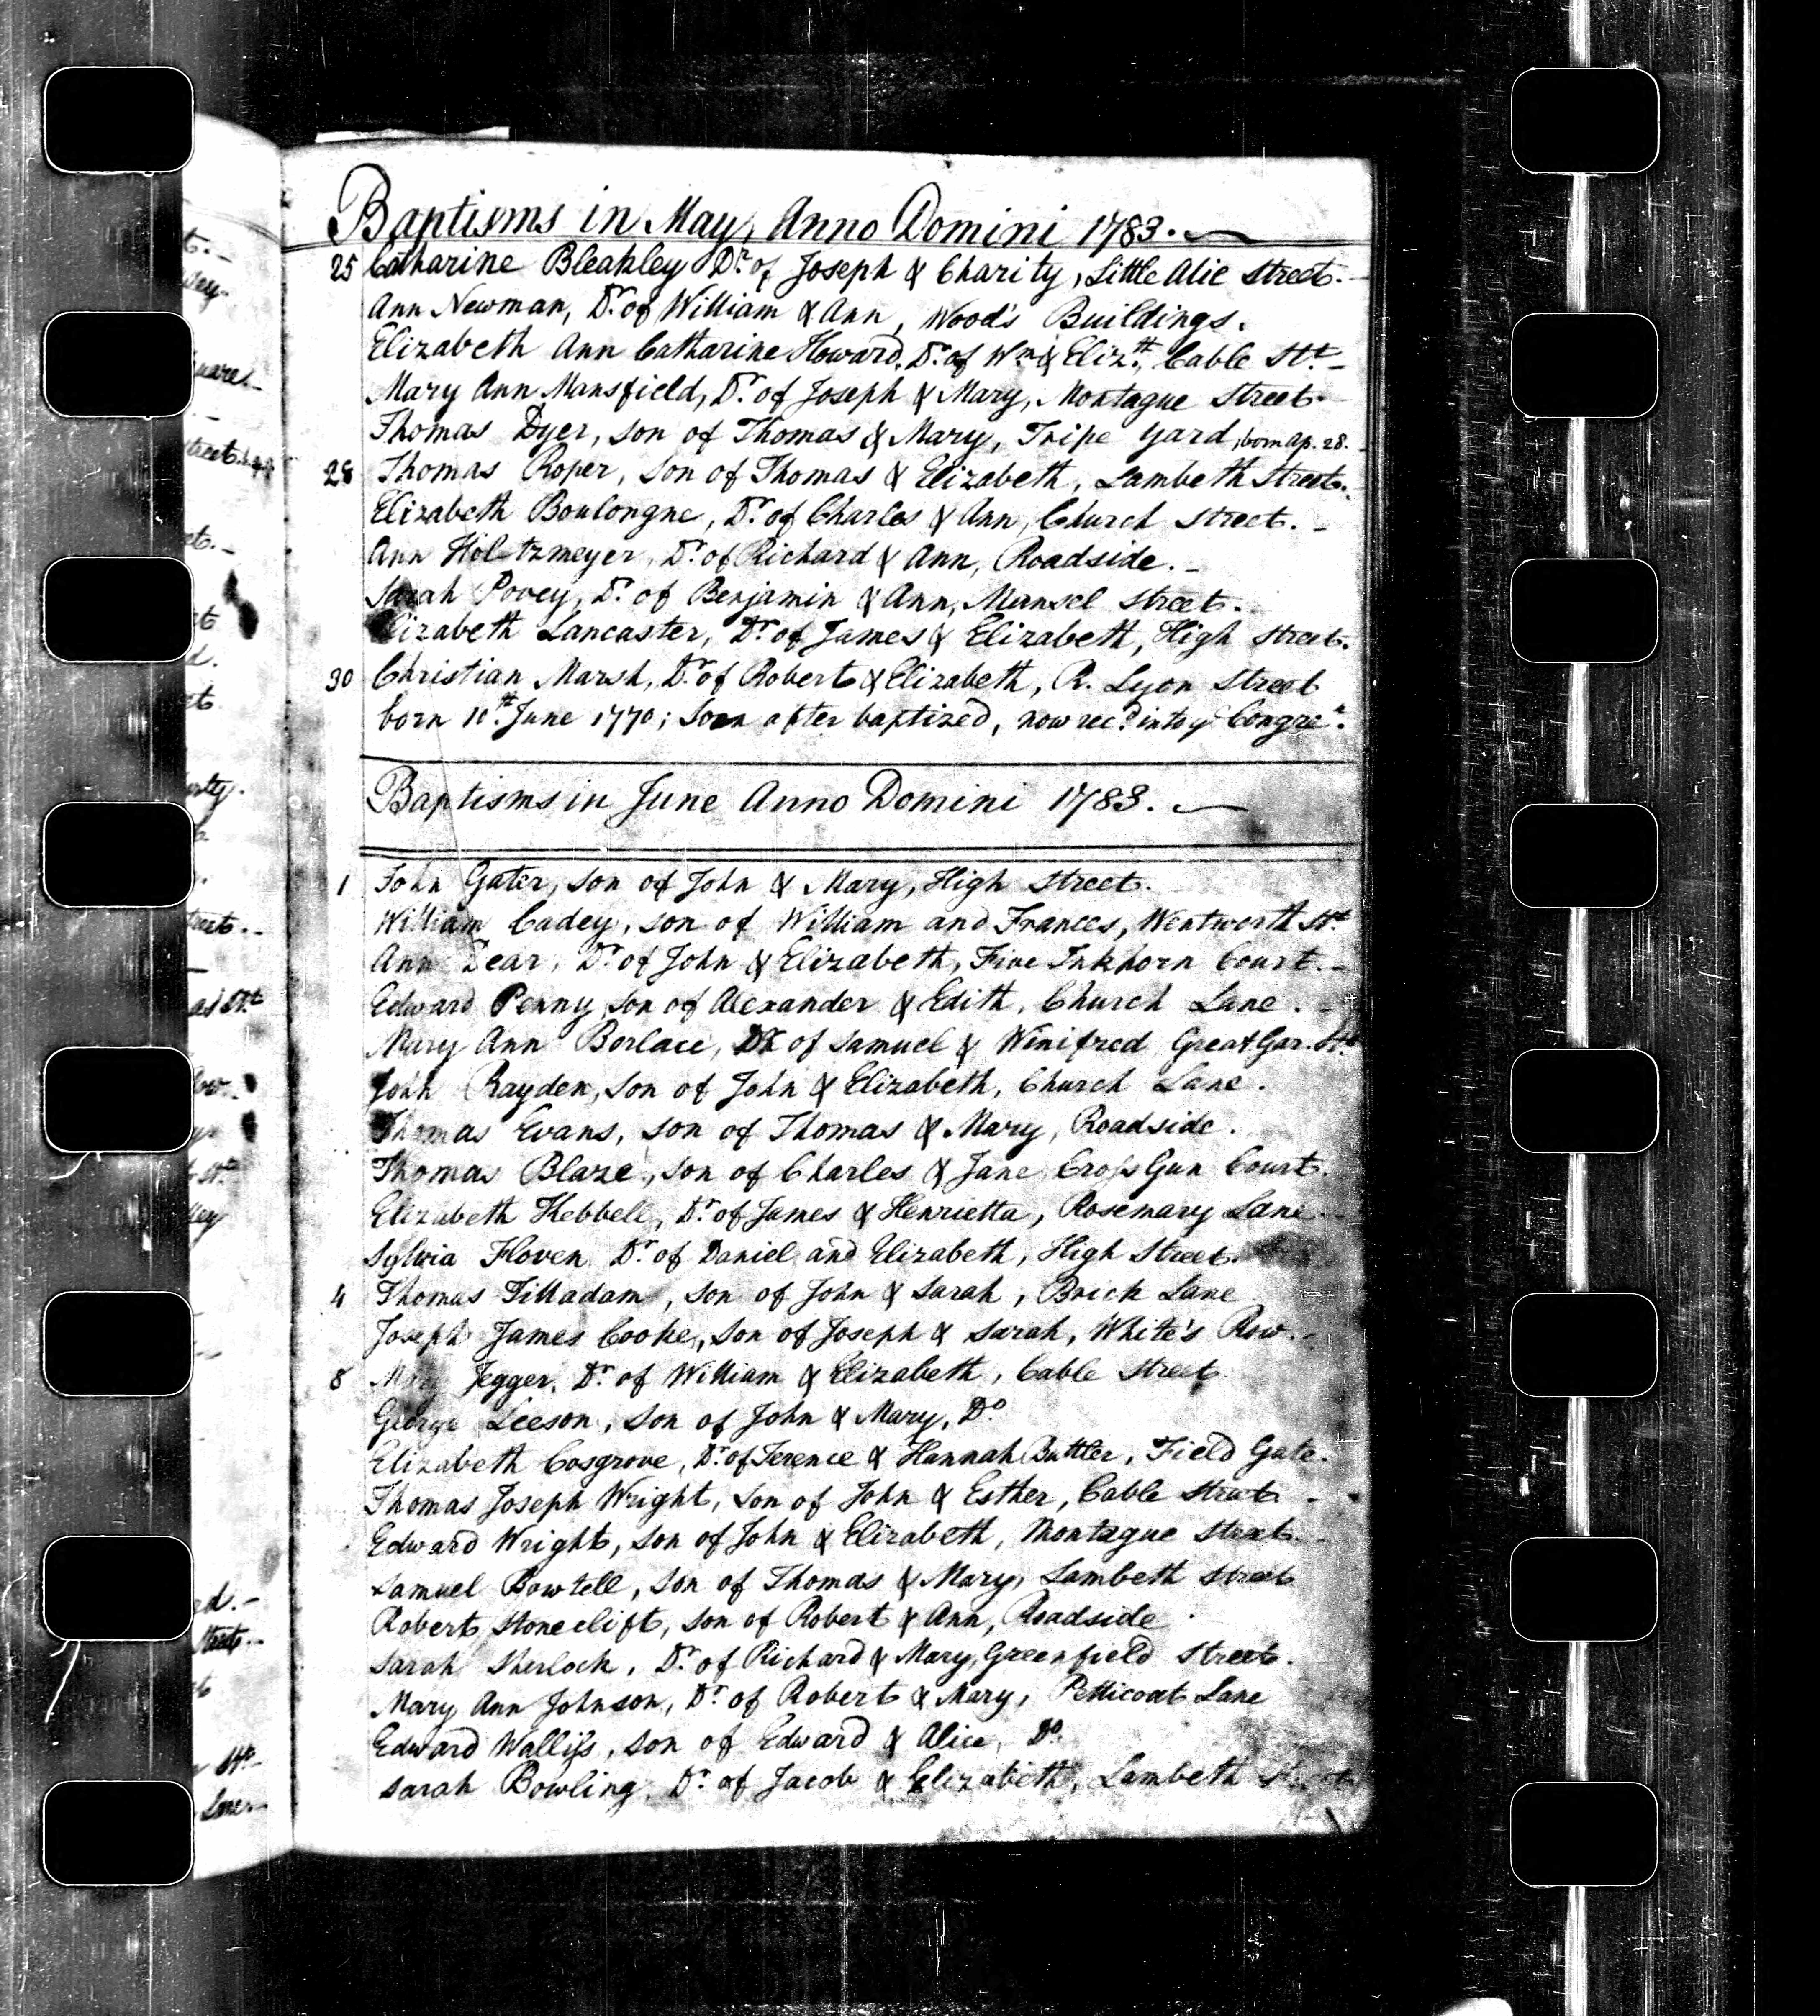 Baptisms in May, Anno Domini 1783.
25 Catharine Bleakley Dr. of Joseph & Charity, Little Alie Street.
Ann Newman, Dr. of William & Ann, Wood's Buildings.
Elizabeth Ann Catharine Howard, Dr. of Wm. & Elizth., Cable Stt.
Mary Ann Mansfield, Dr. of Joseph & Mary, Montague Street.
Thomas Dyer, son of Thomas & Mary, Tripe Yard, born Ap. 28.
28 Thomas Roper, son of Thomas & Elizabeth, Lambeth Street.
Elizabeth Boulongne, Dr. of Charles & Ann, Church Street.
Ann Holtzmeyer, Dr. of Richard & Ann, Roadside.
Sarah Povey, Dr. of Benjamin & Ann, Mansel Street.
Elizabeth Lancaster, Dr. of James & Elizabeth, High Street.
30 Christian Marsh, Dr. of Robert & Elizabeth, R. Lyon Street
born 10th. June 1770; soon after baptized, now recd. into ye Congren.
Baptisms in June Anno Domini 1783.
1 John Gater, son of John & Mary, High Street.
William Cadey, son of William and Frances, Wentworth Stt.
Ann Dear, Dr. of John & Elizabeth, Five Inkhorn Court.
Edward Penny, son of Alexander & Edith, Church Lane.
Mary Ann Borlace, Dr of Samuel & Winifred Great Gar. Stt.
John Rayden, son of John & Elizabeth, Church Lane.
Thomas Evans, son of Thomas & Mary, Roadside.
Thomas Blaze, son of Charles & Jane Cross Gun Court.
Elizabeth Kebbell, Dr. of James & Henrietta, Rosemary Lane
Sylvia Floven Dr. of Daniel and Elizabeth, High Street.
4 Thomas Filladam, son of John & Sarah, Brick Lane
Joseph James Cooke, son of Joseph & Sarah, White's Row.
8 Mary Jegger, Dr. of William & Elizabeth, Cable Street
George Leeson, son of John & Mary, Do
Elizabeth Cosgrove, Dr. of Terence & Hannah Buttler, Field Gate.
Thomas Joseph Wright, son of John & Esther, Cable Street
Edward Wright, son of John & Elizabeth, Montague Street.
Samuel Bowtell, son of Thomas & Mary, Lambeth Street
Robert Stoneclift, son of Robert & Ann, Roadside
Sarah Sherlock, Dr. of Richard & Mary, Greenfield Street.
Mary Ann Johnson, Dr. of Robert & Mary, Petticoat Lane
Edward Wallis, son of Edward & Alice, Do.
Sarah Bowling, Dr. of Jacob & Elizabeth, Lambeth Street